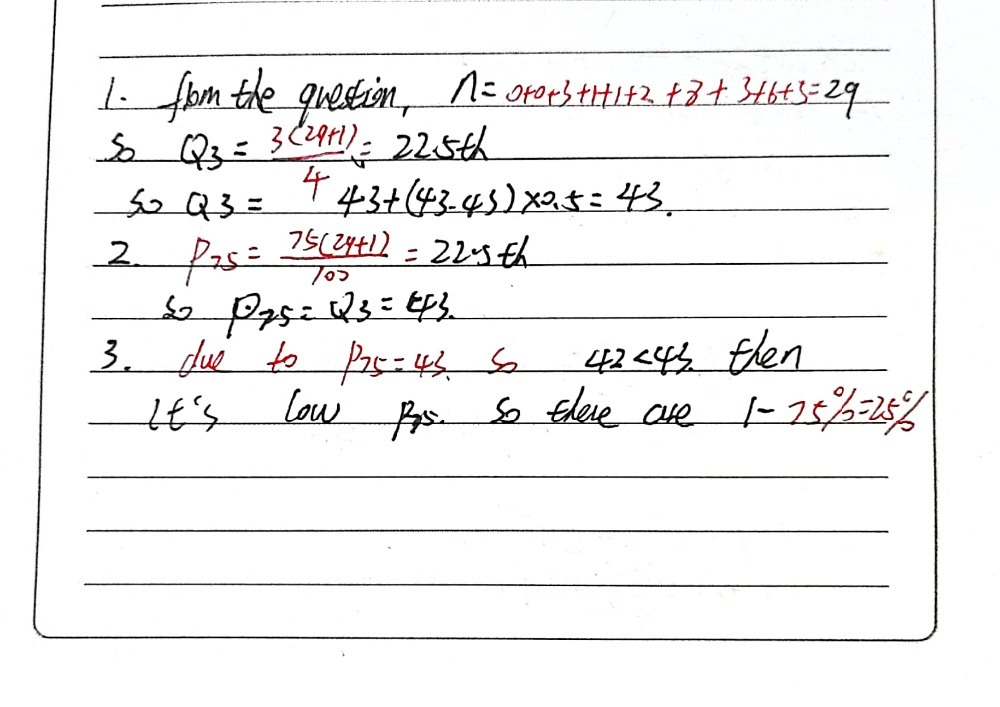 1. from the question, n= 0+0+3+1+1+2 +8+ 3+6+5=29
So Q3 = 3(29+1)/4 = 22.5th
So Q3 = 43+(43-43)×0.5=43.
2. P75 = 75(29+1)/100 = 22.5th
So P75 = Q3 = 43.
3. due to P75=43. So 42<43. then
It's low P75. So there are 1-75%=25%